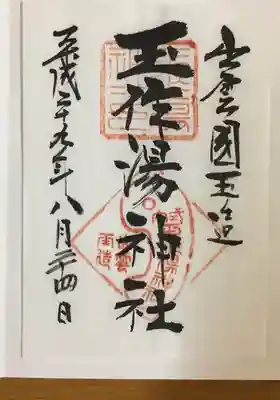 出雲國玉造
玉作湯神社
平成二十九年八月二十四日